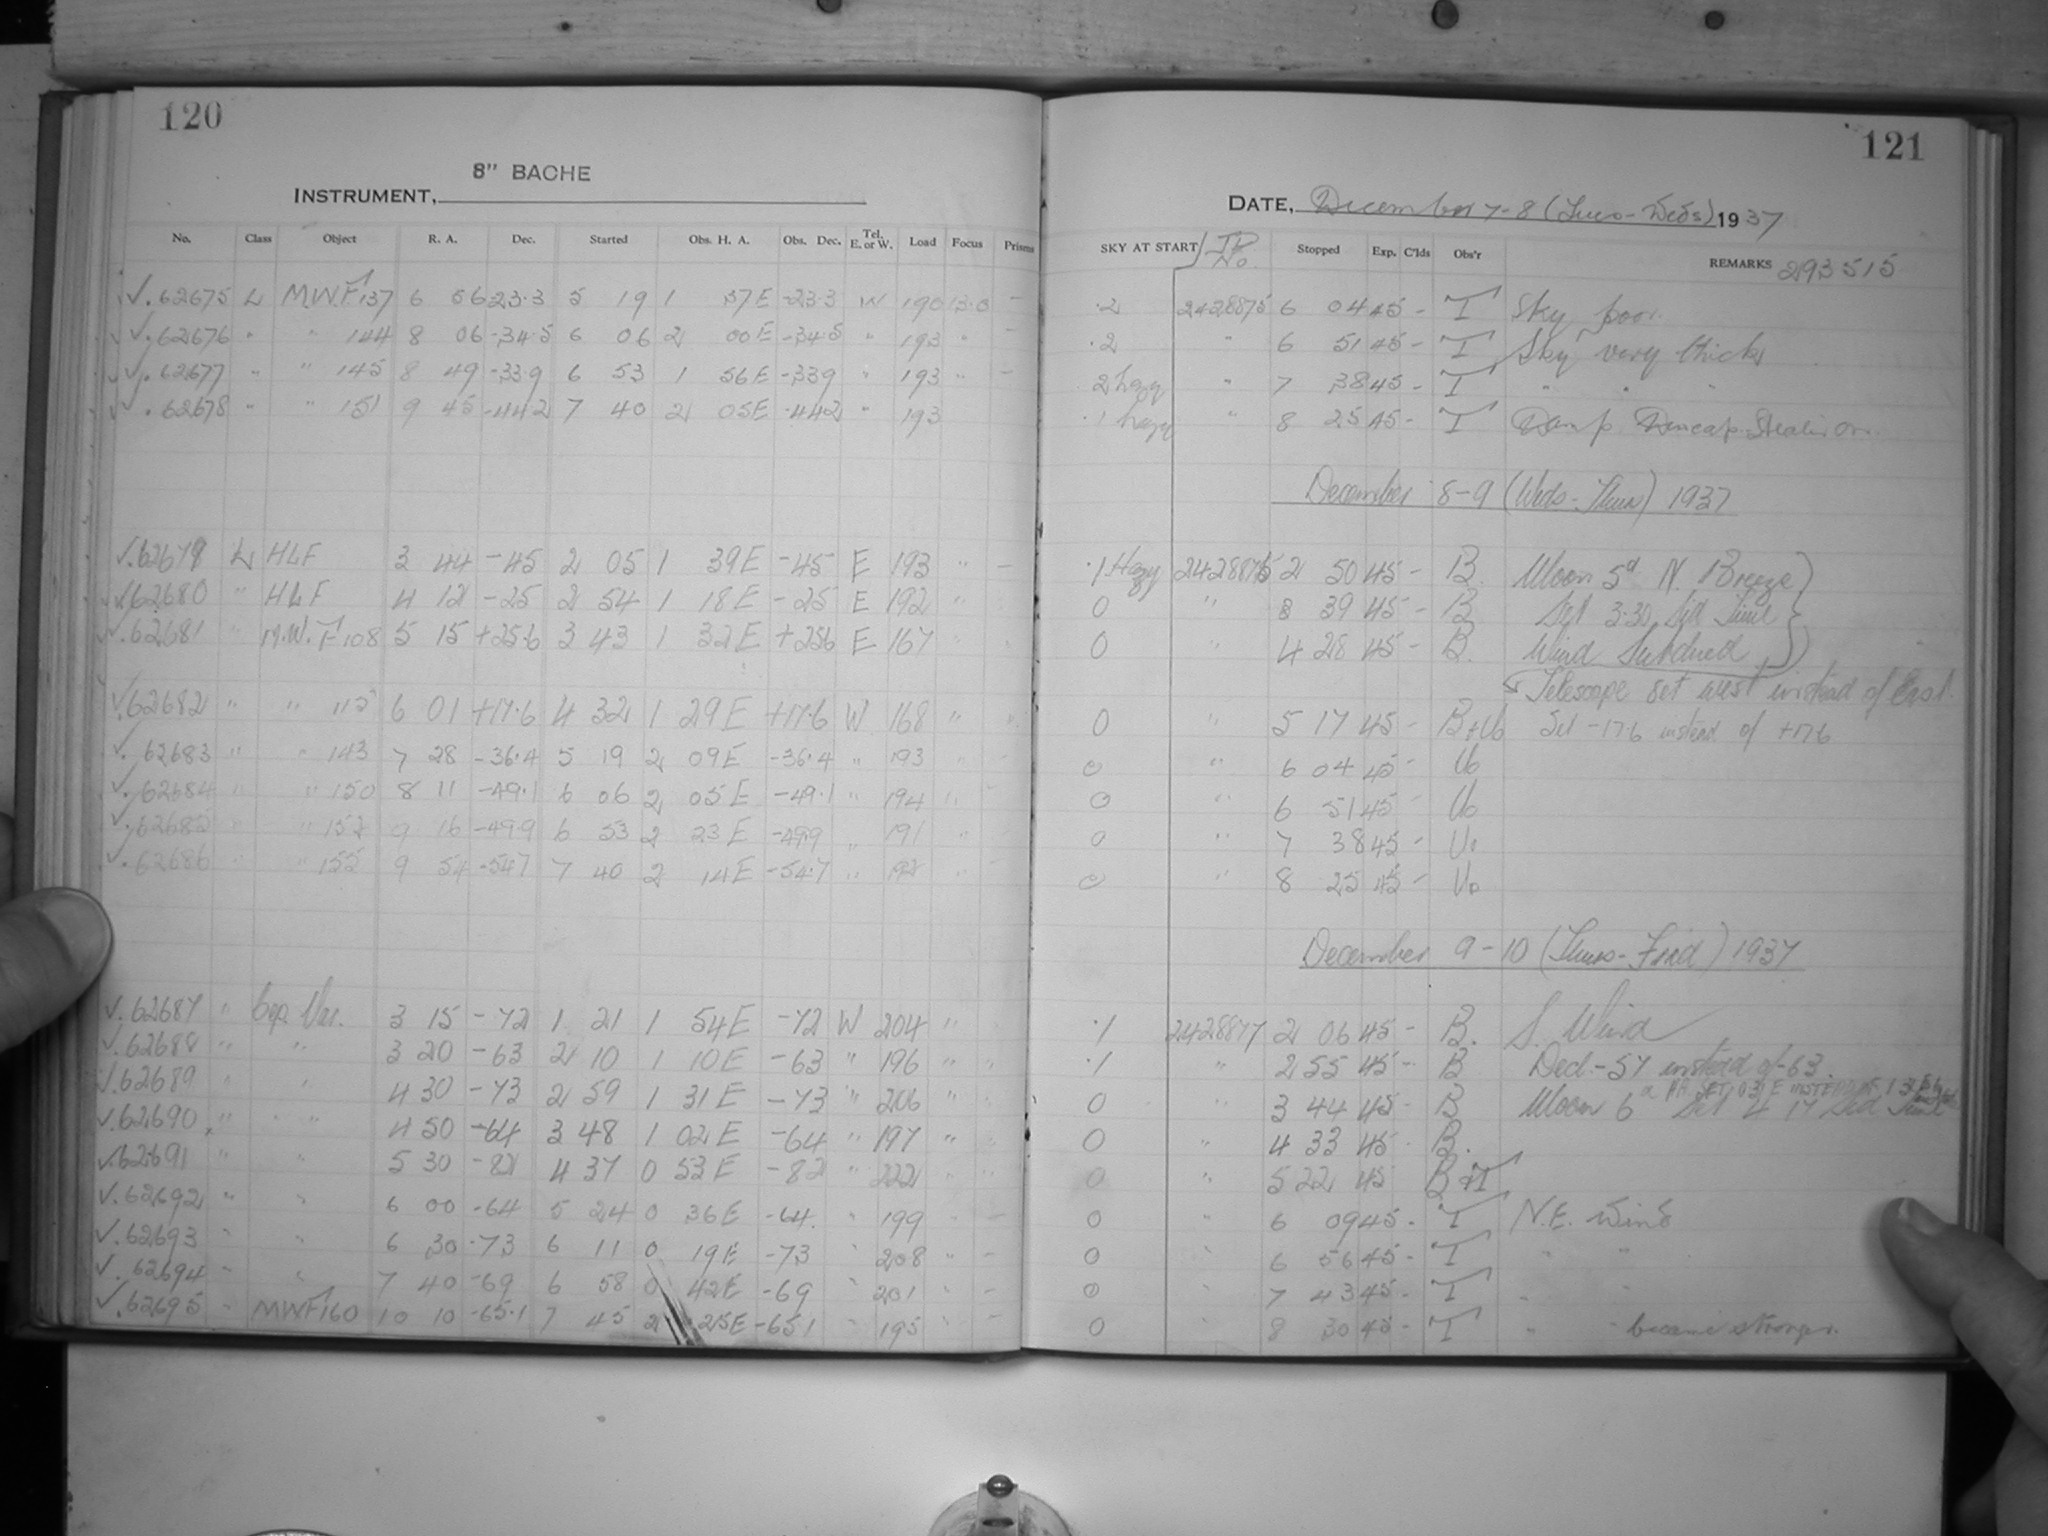 120
8" BACHE
INSTRUMENT,
No. Class Object R. A. Dec. Started Obs. H. A. Obs. Dec. Tel. E. or W. Load Focus Prisms
✓.62675 L M.W.F.137 6 56 -23.3 5 19 1 37E -23.3 W 190 13.0 -
✓.62676 " " 144 8 06 -34.5 6 06 2 00E -34.5 " 193 " -
✓.62677 " " 145 8 49 -33.9 6 53 1 56E -339 " 193 " -
✓.62678 " " 151 9 45 -44.2 7 40 2 05E -442 " 193
✓.62679 L HLF 3 44 -45 2 05 1 39E -45 E 193 " -
✓.62680 " HLF 4 12 -25 2 54 1 18E -25 E 192 "
✓.62681 " M.W.F108 5 15 +25.6 3 43 1 32E +256 E 167 "
✓.62682 " " 6 01 +17.6 4 32 1 29E +17.6 W 168 "
✓.62683 " " 143 7 28 -36.4 5 19 2 09E -36.4 " 193 " -
✓.62684 " " 150 8 11 -49.1 6 06 2 05E -49.1 " 194 "
✓.62685 " " 9 16 -49.9 6 53 2 23E -499 " 191 "
✓.62686 " " 9 54 -547 7 40 2 14E -54.7 "
✓.62687 " Cep. Var. 3 15 -72 1 21 1 54E -72 W 204 "
✓.62688 " " 3 20 -63 2 10 1 10E -63 " 196 "
✓.62689 " " 4 30 -73 2 59 1 31E -73 " 206 "
✓.62690 " " 4 50 -64 3 48 1 02E -64 " 197 "
✓.62691 " " 5 30 -82 4 37 0 53E -82 " 222 "
✓.62692 " " 6 00 -64 5 24 0 36E -64 " 199 " -
✓.62693 " " 6 30 -73 6 11 0 19E -73 " 208 " -
✓.62694 " " 7 40 -69 6 58 0 42E -69 " 201 " -
✓.62695 " MWF160 10 10 -65.1 7 45 2 25E -651 " 195 " -
121
DATE, December 7-8 (Tues-Weds) 1937
SKY AT START JD No. Stopped Exp. C'lds Obs'r REMARKS 293515
.2 2428875 6 04 45 - T Sky poor
.2 " 6 51 45 - T Sky very thick
2 hazy " 7 38 45 - T " " "
.1 hazy " 8 25 45 - T Damp
December 8-9 (Weds-Thurs) 1937
.1 Hazy 2428876 2 50 45 - B. Moon 5d N. Breeze
0 " 3 39 45 - B. Set 3.30 Sid Time
0 " 4 28 45 - B. Wind Subdued
Telescope set west instead of East.
0 " 5 17 45 - B+Uo Set -17.6 instead of +17.6
0 " 6 04 45 - Uo
0 " 6 51 45 - Uo
0 " 7 38 45 - Uo
0 " 8 25 45 - Uo
December 9-10 (Thurs-Frid) 1937
.1 2428877 2 06 45 - B. S. Wind
.1 " 2 55 45 - B Decl -57 instead of -63.
0 " 3 44 45 - B Moon 6d Set 4 17 Sid Time
0 " 4 33 45 - B.
0 " 5 22 45 B+T
0 " 6 09 45 - T N.E. Wind
0 " 6 56 45 - T " "
0 " 7 43 45 - T " "
0 " 8 30 45 - T " " became stronger.